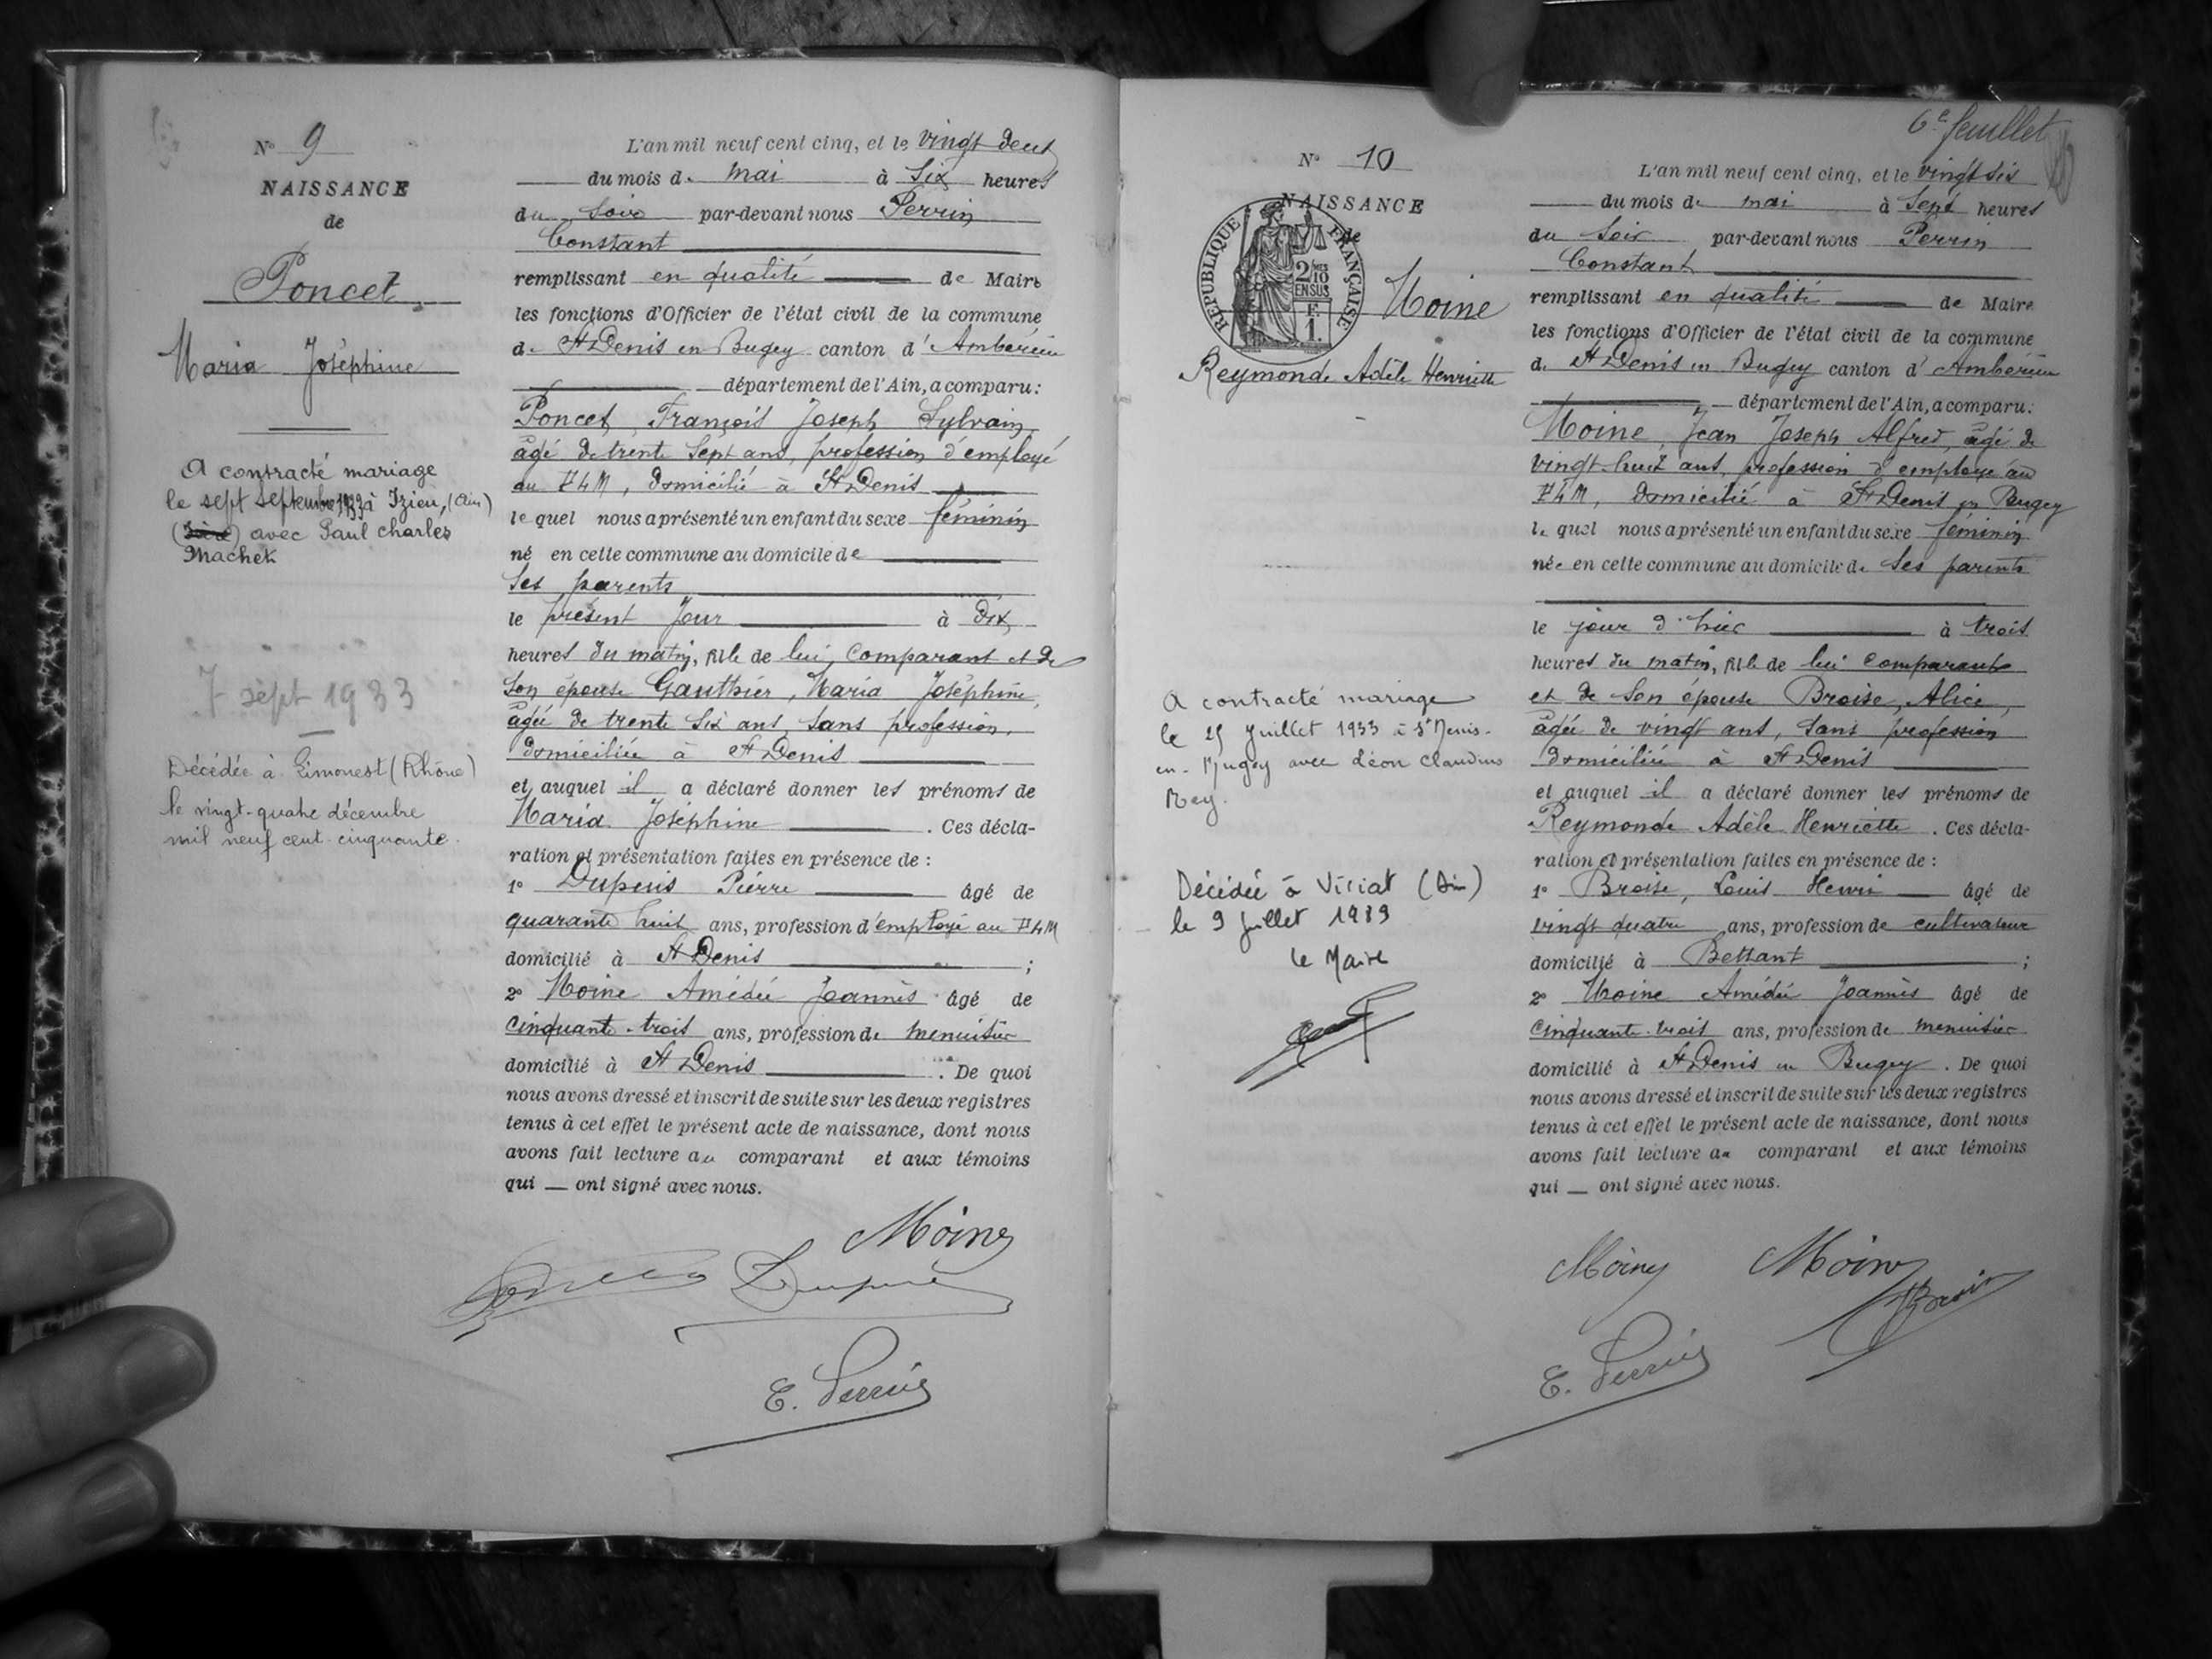 N° 9
NAISSANCE
de
Poncet
Maria Joséphine
A contracté mariage
le sept septembre 1933 à Izieu, (Ain)
avec Paul Charles
Machek
7 sept 1933
Décédée à Limonest (Rhône)
le vingt-quatre décembre
mil neuf cent cinquante.
L'an mil neuf cent cinq, et le vingt deux
du mois de mai à six heures
du soir par-devant nous Perrin
Constant
remplissant en qualité de Maire
les fonctions d'Officier de l'état civil de la commune
de St Denis en Bugey canton d'Ambérieu
département de l'Ain, a comparu:
Poncet, François Joseph Sylvain,
âgé de trente sept ans, profession d'employé
au PLM, domicilié à St Denis
le quel nous a présenté un enfant du sexe féminin
né en cette commune au domicile de
ses parents
le présent jour à dix
heures du matin, fille de lui, comparant et de
son épouse Gauthier, Maria Joséphine,
âgée de trente six ans, sans profession,
domiciliée à St Denis
et auquel il a déclaré donner les prénoms de
Maria Joséphine. Ces décla-
ration et présentation faites en présence de :
1° Dupuis Pierre âgé de
quarante huit ans, profession d'employé au PLM
domicilié à St Denis ;
2° Moine Amédée Joannès âgé de
cinquante-trois ans, profession de menuisier
domicilié à St Denis. De quoi
nous avons dressé et inscrit de suite sur les deux registres
tenus à cet effet le présent acte de naissance, dont nous
avons fait lecture au comparant et aux témoins
qui — ont signé avec nous.
Moine
Dupuis
E. Perrin
6e feuillet
N° 10
NAISSANCE
de
RÉPUBLIQUE FRANÇAISE
2 MES
10
EN SUS
F.
1.
Moine
Reymonde Adèle Henriette
A contracté mariage
le 25 Juillet 1933 à St Denis-
en-Bugey avec Léon Claudius
Rey.
Décédée à Viriat (Ain)
le 9 Juillet 1989
le Maire
L'an mil neuf cent cinq, et le vingt six
du mois de mai à sept heures
du soir par-devant nous Perrin
Constant
remplissant en qualité de Maire
les fonctions d'Officier de l'état civil de la commune
de St Denis en Bugey canton d'Ambérieu
département de l'Ain, a comparu:
Moine, Jean Joseph Alfred, âgé de
vingt-huit ans, profession d'employé au
PLM, domicilié à St Denis en Bugey
le quel nous a présenté un enfant du sexe féminin
née en cette commune au domicile de ses parents
le jour d'hier à trois
heures du matin, fille de lui comparant
et de son épouse Broise, Alice,
âgée de vingt ans, sans profession
domiciliée à St Denis
et auquel il a déclaré donner les prénoms de
Reymonde Adèle Henriette. Ces décla-
ration et présentation faites en présence de :
1° Broise, Louis Henri âgé de
vingt quatre ans, profession de cultivateur
domicilié à Bettant ;
2° Moine Amédée Joannès âgé de
cinquante-trois ans, profession de menuisier
domicilié à St Denis en Bugey. De quoi
nous avons dressé et inscrit de suite sur les deux registres
tenus à cet effet le présent acte de naissance, dont nous
avons fait lecture au comparant et aux témoins
qui — ont signé avec nous.
Moine Moine
Broise
E. Perrin